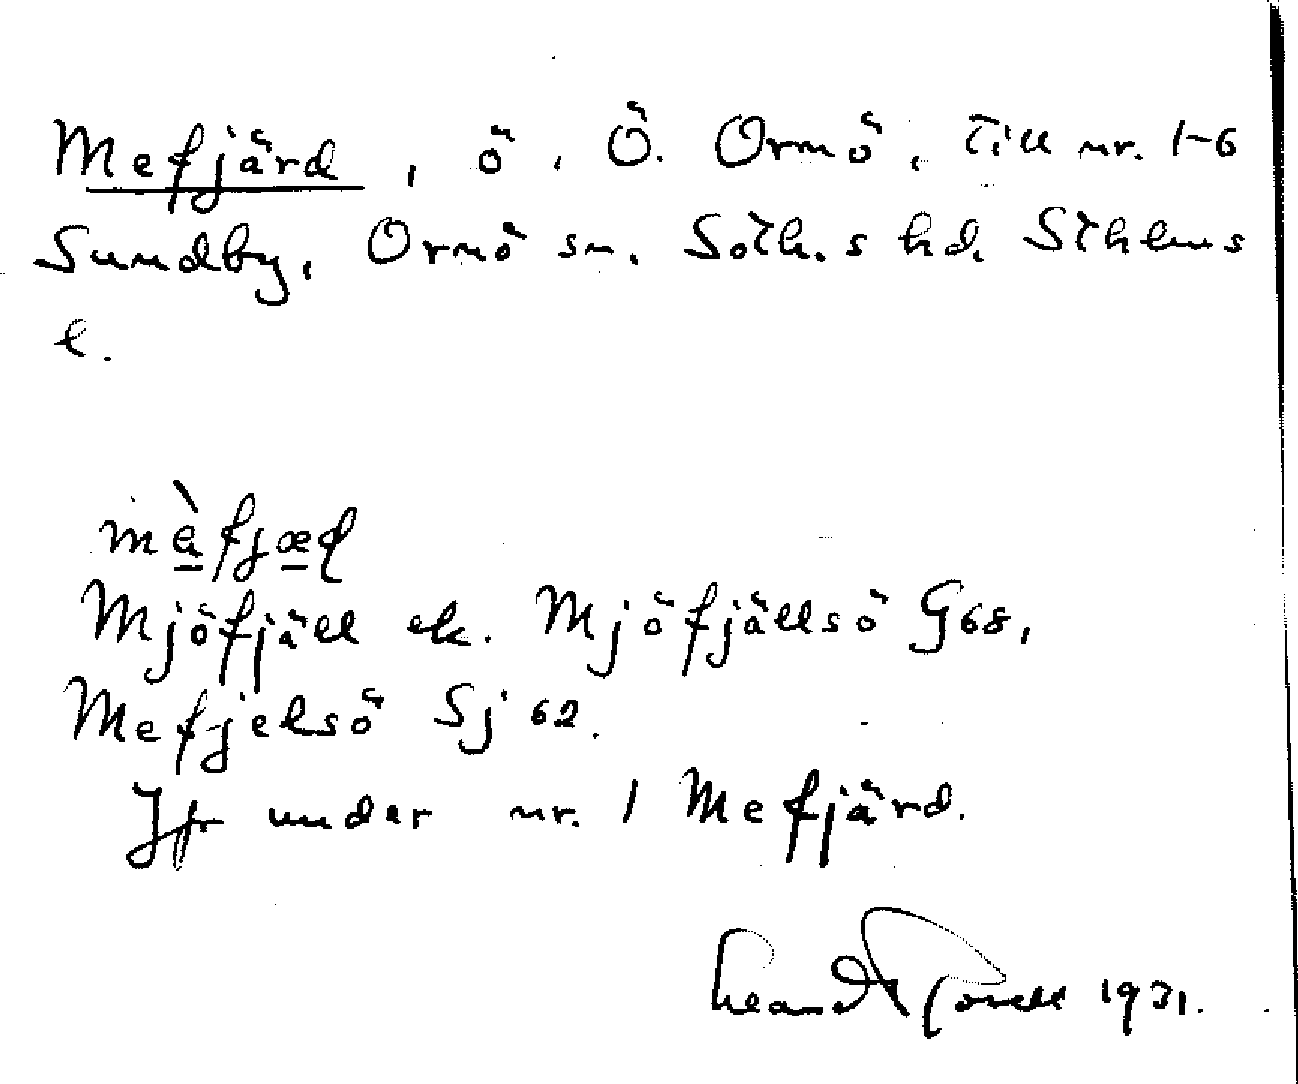 Mefjärd, ö, Ö. Ormö, Till nr. 1-6
Sundby, Ormö sn. Soth.s hd. Sthlms
l.
mèfjæd
Mjöfjäll el. Mjöfjällsö G 68,
Mefjelsö Sj 62.
Jfr under nr. 1 Mefjärd.
1931.